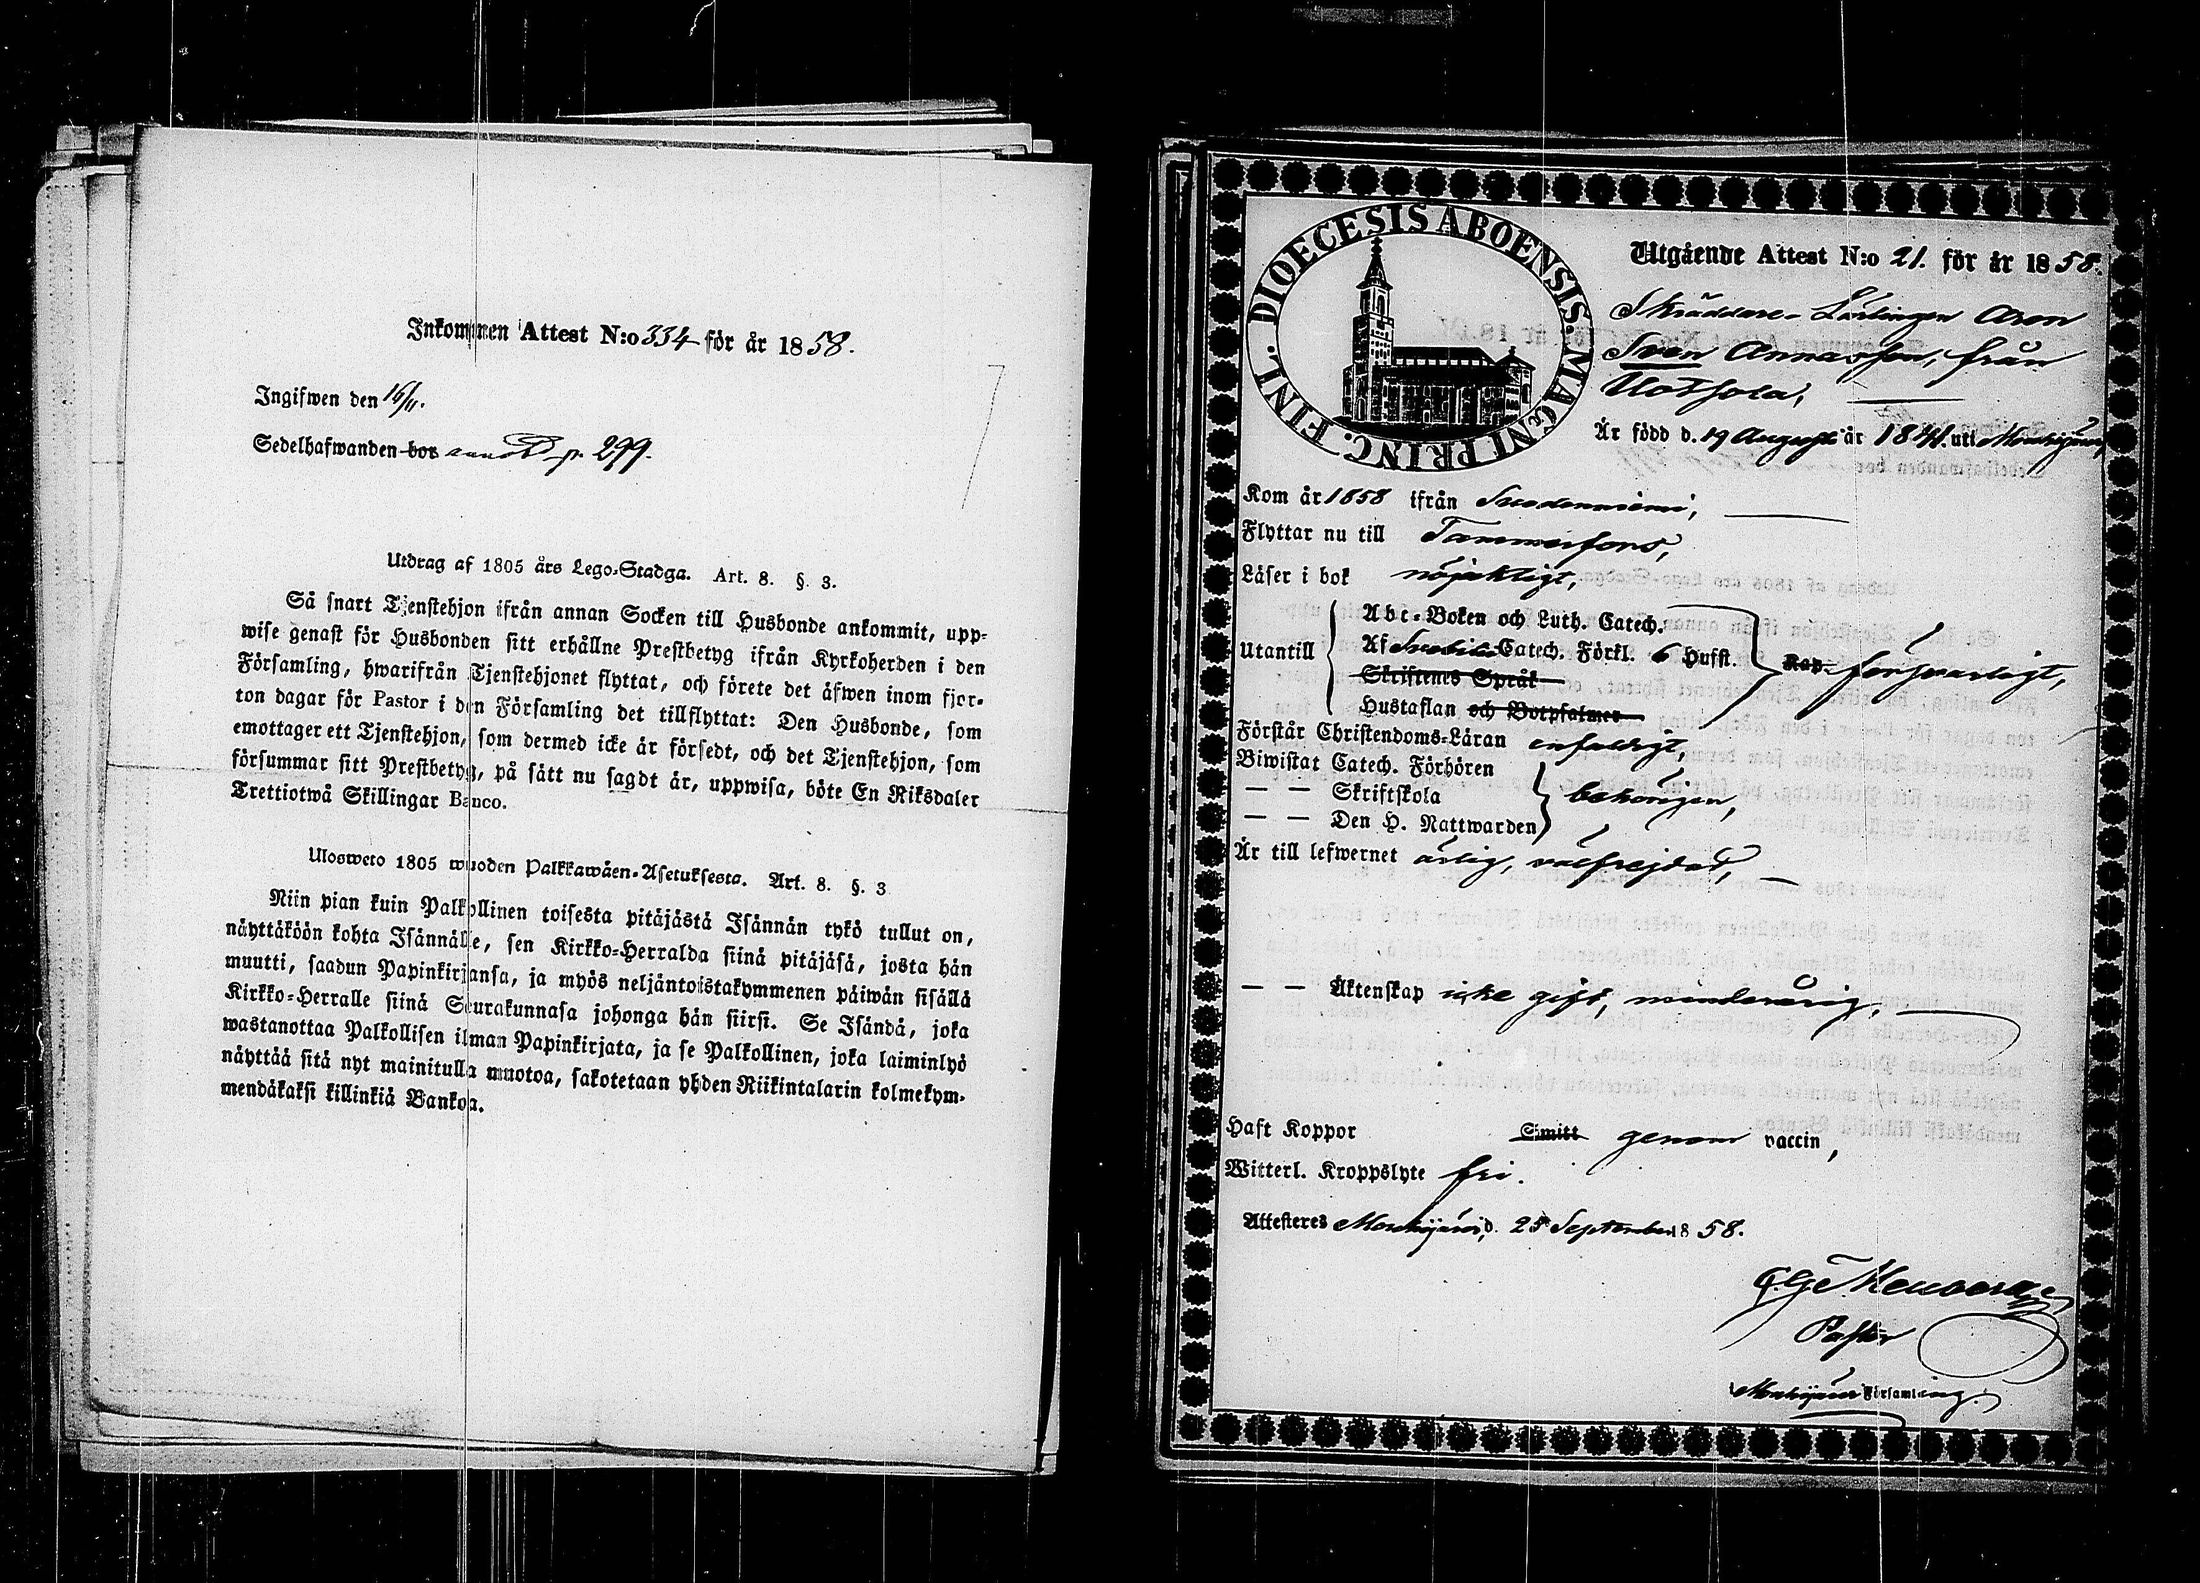 Inkommen Attest N:o 334 för år 1858.
Ingifwen den 16/11.
Sedelhafwanden bor p. 299.
Utdrag af 1805 års Lego-Stadga. Art. 8. §. 3.
Så snart Tjenstehjon ifrån annan Socken till Husbonde ankommit, upp-
wise genast för Husbonden sitt erhållne Prestbetyg ifrån Kyrkoherden i den
Församling, hwarifrån Tjenstehjonet flyttat, och förete det äfwen inom fjor-
ton dagar för Pastor i den Församling det tillflyttat: Den Husbonde, som
emottager ett Tjenstehjon, som dermed icke är försedt, och det Tjenstehjon, som
försummar sitt Prestbetyg, på sätt nu sagdt är, uppwisa, böte En Riksdaler
Trettiotwå Skillingar Banco.
Ulosweto 1805 wuoden Palkkawäen-Asetuksesta. Art. 8. §. 3
Niin pian kuin Palkollinen toisesta pitäjästä Isännän tykö tullut on,
näyttäköön kohta Isännälle, sen Kirkko-Herralda siinä pitäjäsä, josta hän
muutti, saadun Papinkirjansa, ja myös neljäntoistakymmenen päiwän sisällä
Kirkko-Herralle siinä Seurakunnasa johonga hän siirsi. Se Isändä, joka
wastanottaa Palkollisen ilman Papinkirjata, ja se Palkollinen, joka laiminlyö
näyttää sitä nyt mainitulla muotoa, sakotetaan yhden Riikintalarin kolmekym-
mendäkaksi killinkiä Bankoa.
DIOECESIS ABOENSIS. MAGNI PRINC. FINL.
Utgående Attest N:o 21. för år 1858.
Skräddare-Lärlingen Aron
Sven Annasson, från
Uotsola,
Är född d. 19 Augusti år 1841. uti Mouhijärvi,
Kom år 1858 ifrån Suodenniemi,
Flyttar nu till Tammerfors,
Läser i bok nöjaktigt,
Abc-Boken och Luth. Catech.
Utantill Af Svebilii Catech. Förkl. 6 Hufst. Kap. försvarligt,
Skriftenes Språk
Hustaflan och Botpsalmer
Förstår Christendoms-Läran enfaldigt,
Biwistat Catech. Förhören
— — Skriftskola behörigen,
— — Den H. Nattwarden
Är till lefwernet ärlig, välfrejdad,
— — Äktenskap icke gift, minderårig,
Haft Koppor Smitt genom vaccin,
Witterl. Kroppslyte fri.
Attesteres Mouhijärvi, d. 25 September 1858.
Pastor
Mouhijärvi Församling.